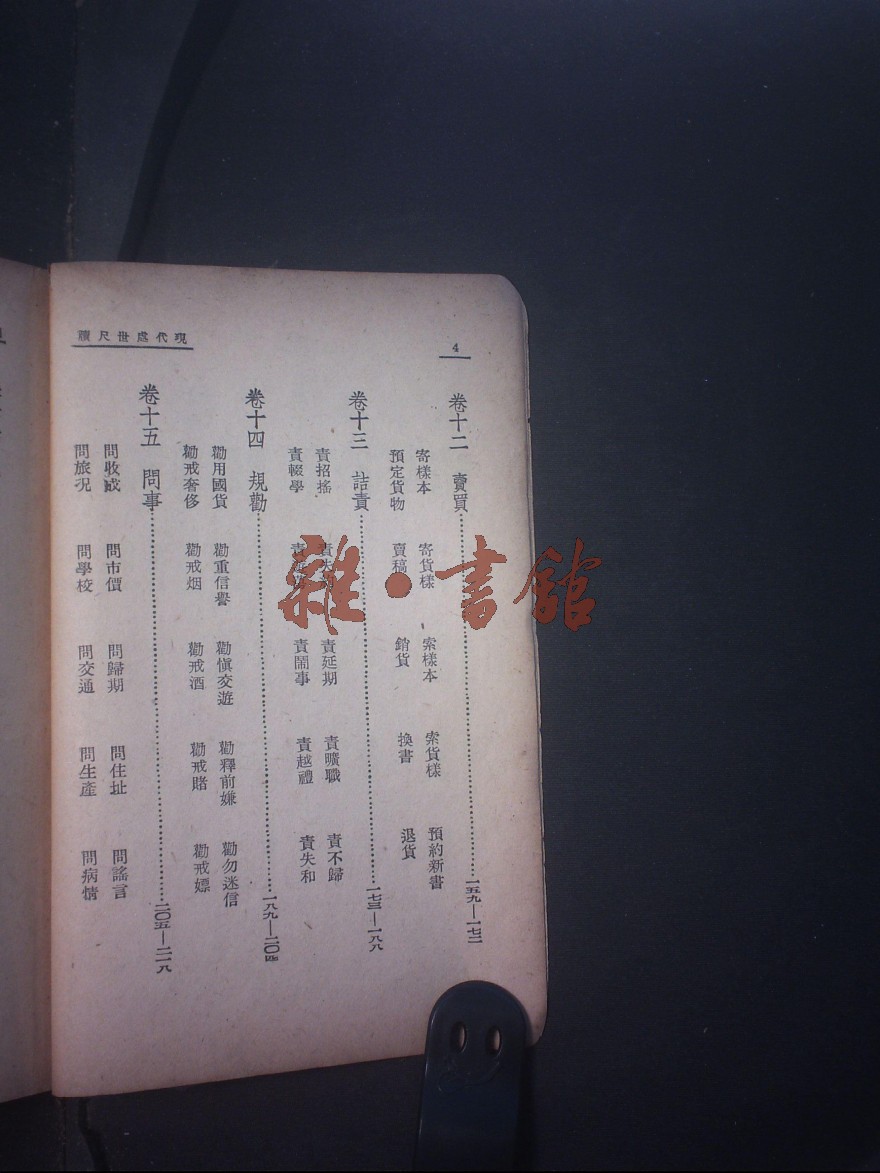 現代處世尺牘
4
卷十二 賣買……一五九—一七二
寄樣本 寄貨樣 索樣本 索貨樣 預約新書
預定貨物 賣稿 銷貨 換書 退貨
卷十三 詰責……一七三—一八八
責招搖 責失 責延期 責曠職 責不歸
責輟學 責 責鬧事 責越禮 責失和
卷十四 規勸……一八九—二〇四
勸用國貨 勸重信譽 勸慎交遊 勸釋前嫌 勸勿迷信
勸戒奢侈 勸戒烟 勸戒酒 勸戒賭 勸戒嫖
卷十五 問事……二〇五—二一八
問收成 問市價 問歸期 問住址 問謠言
問旅況 問學校 問交通 問生產 問病情
雜·書館